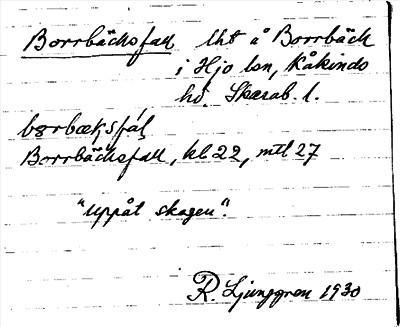 Borrbäcksfall lht å Borrbäck
i Hjo lsn, Kåkinds
hd. Skarab. l.
bɷrbæksfál
Borrbäcksfall, kbl 22, mtl 27
"uppåt skogen".
R. Ljunggren 1930